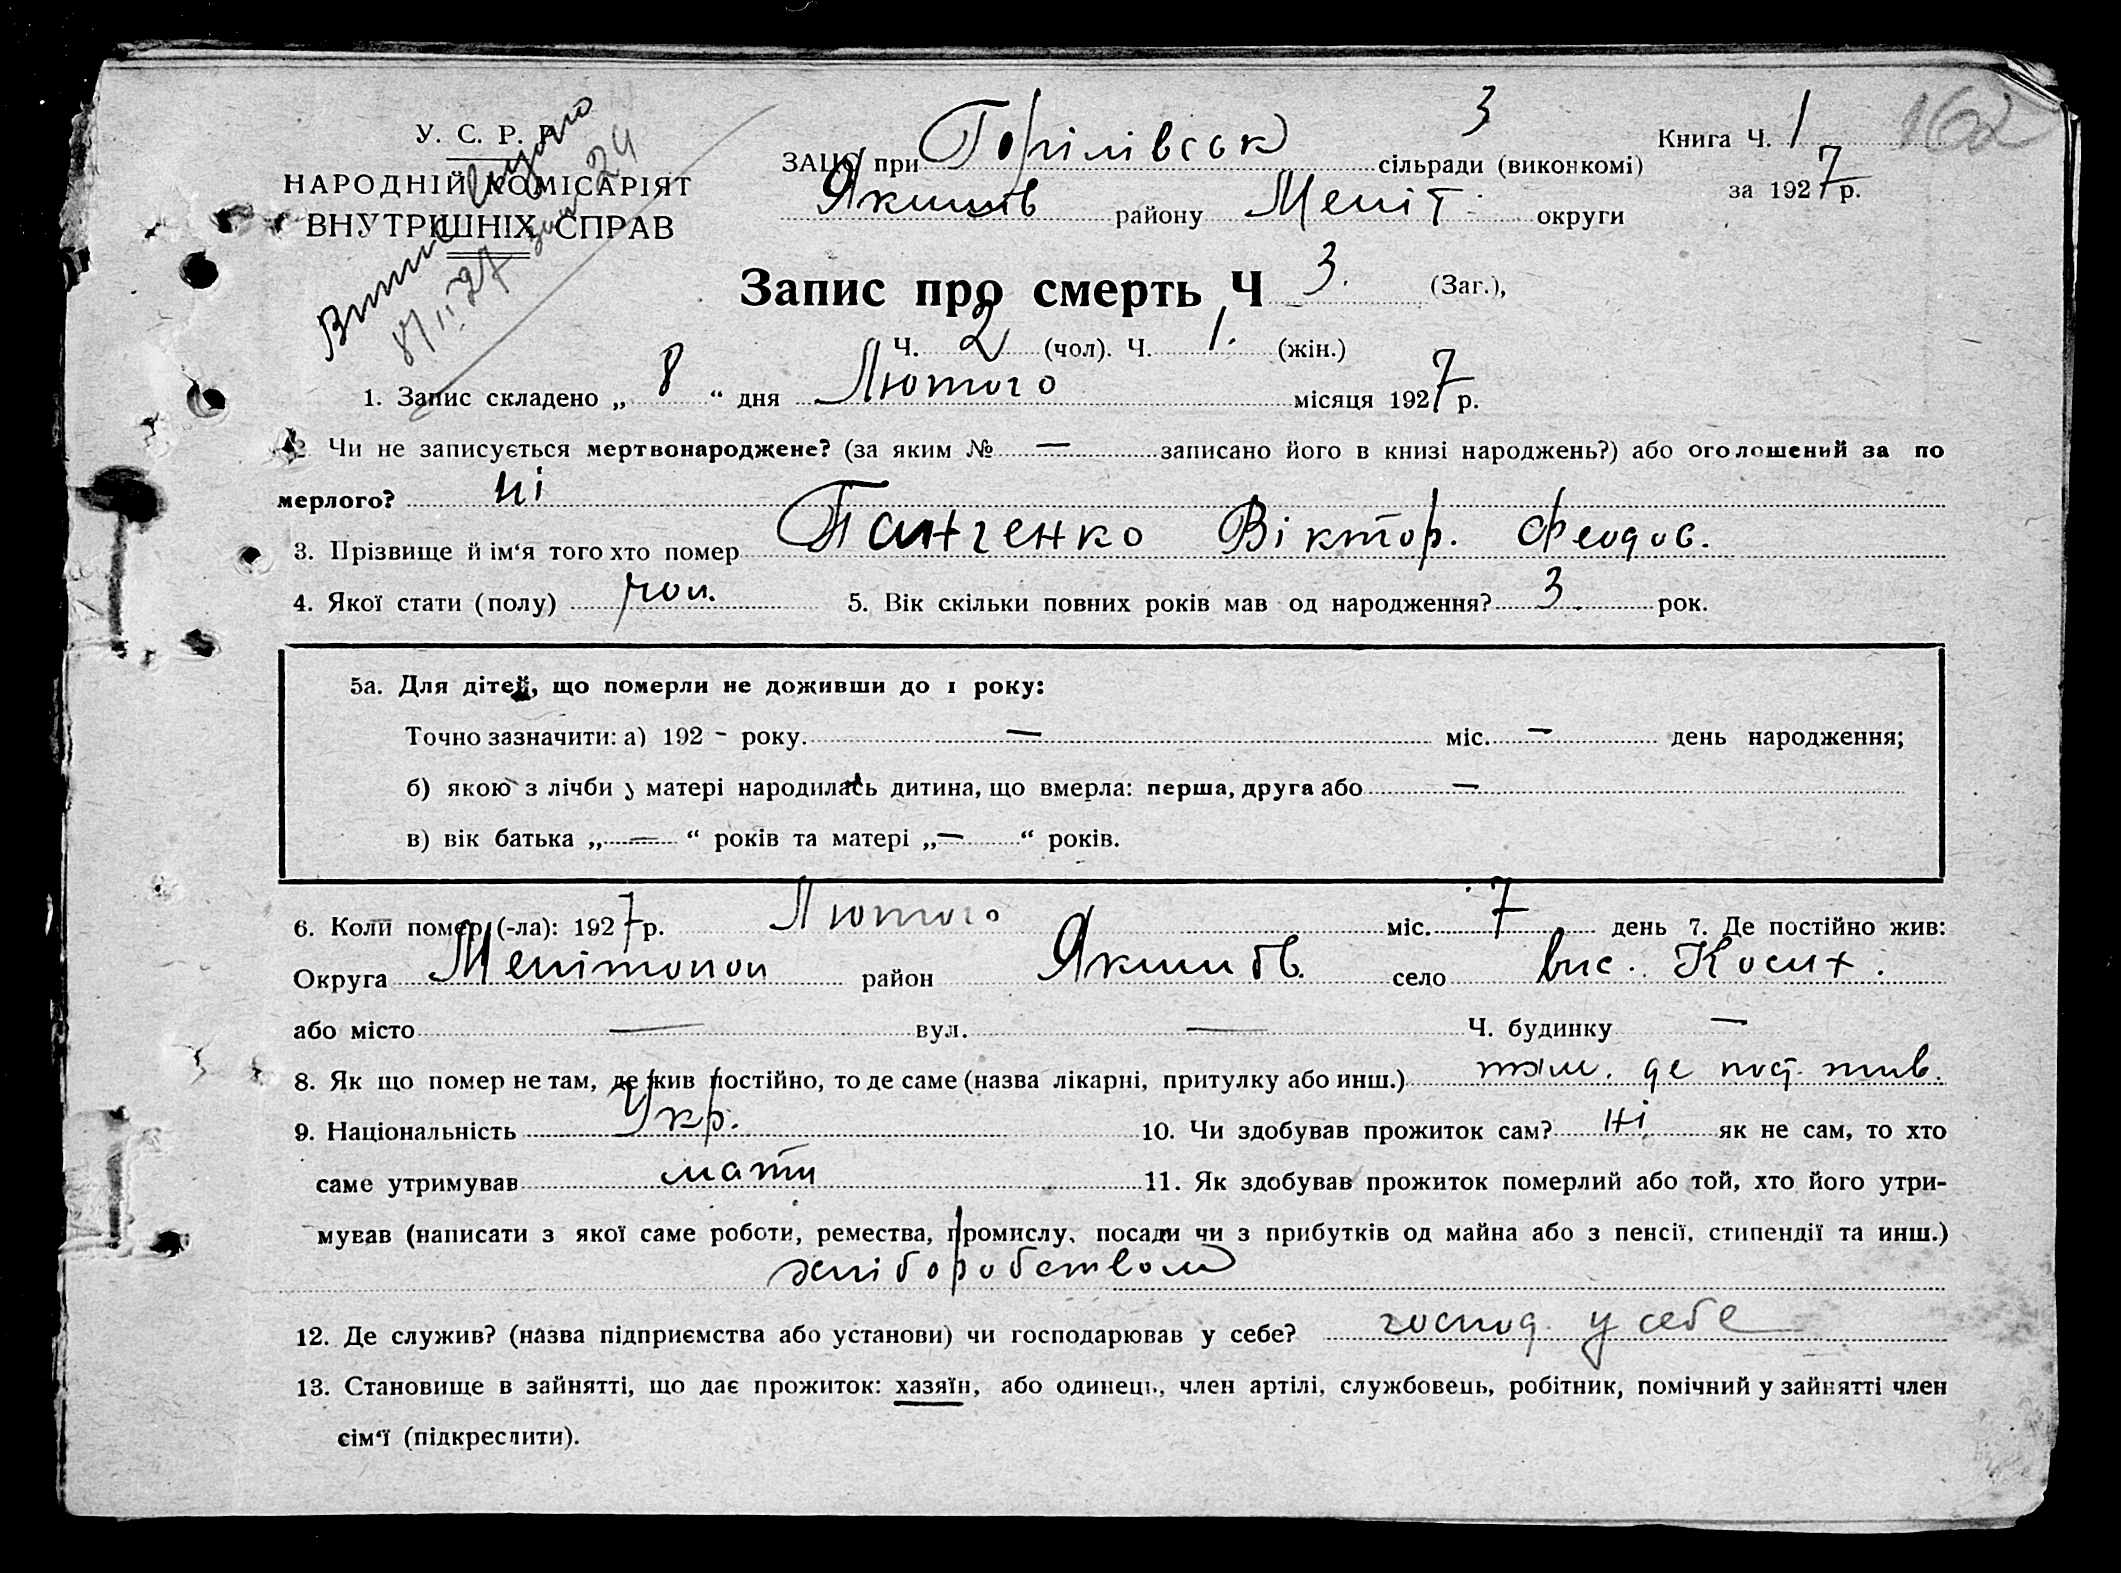 162
У. С. Р. Р.
НАРОДНІЙ КОМІСАРІЯТ
ВНУТРІШНІХ СПРАВ
8/II 27
24
3
ЗАЦС при Горілівськ сільради (виконкомі)
Якимів району Меліт. округи
Книга Ч. 1
за 1927 р.
Запис про смерть Ч 3. (Заг.),
Ч. 2 (чол). Ч. 1. (жін.)
1. Запис складено „ 8 “ дня Лютого місяця 1927 р.
2. Чи не записується мертвонароджене? (за яким № — записано його в книзі народжень?) або оголошений за по
мерлого? ні
3. Прізвище й ім‘я того хто помер Панченко Віктор. Феодос.
4. Якої стати (полу) чол. 5. Вік скільки повних років мав од народження? 3 рок.
5а. Для дітей, що померли не доживши до 1 року:
Точно зазначити: а) 192 - року. — міс. — день народження;
б) якою з лічби у матері народилась дитина, що вмерла: перша, друга або —
в) вік батька „ — “ років та матері „ — “ років.
6. Коли помер (-ла): 1927 р. Лютого міс. 7 день 7. Де постійно жив:
Округа Мелітопол район Якимів. село вис. Косих.
або місто — вул. — Ч. будинку —
8. Як що помер не там, де жив постійно, то де саме (назва лікарні, притулку або инш.) там. де пост. жив.
9. Національність Укр. 10. Чи здобував прожиток сам? ні як не сам, то хто
саме утримував мати 11. Як здобував прожиток померлий або той, хто його утри-
мував (написати з якої саме роботи, ремества, промислу, посади чи з прибутків од майна або з пенсії, стипендії та инш.)
хліборобством
12. Де служив? (назва підприємства або установи) чи господарював у себе? господ. у себе
13. Становище в зайнятті, що дає прожиток: хазяїн, або одинець, член артілі, службовець, робітник, помічний у зайнятті член
сім‘ї (підкреслити).